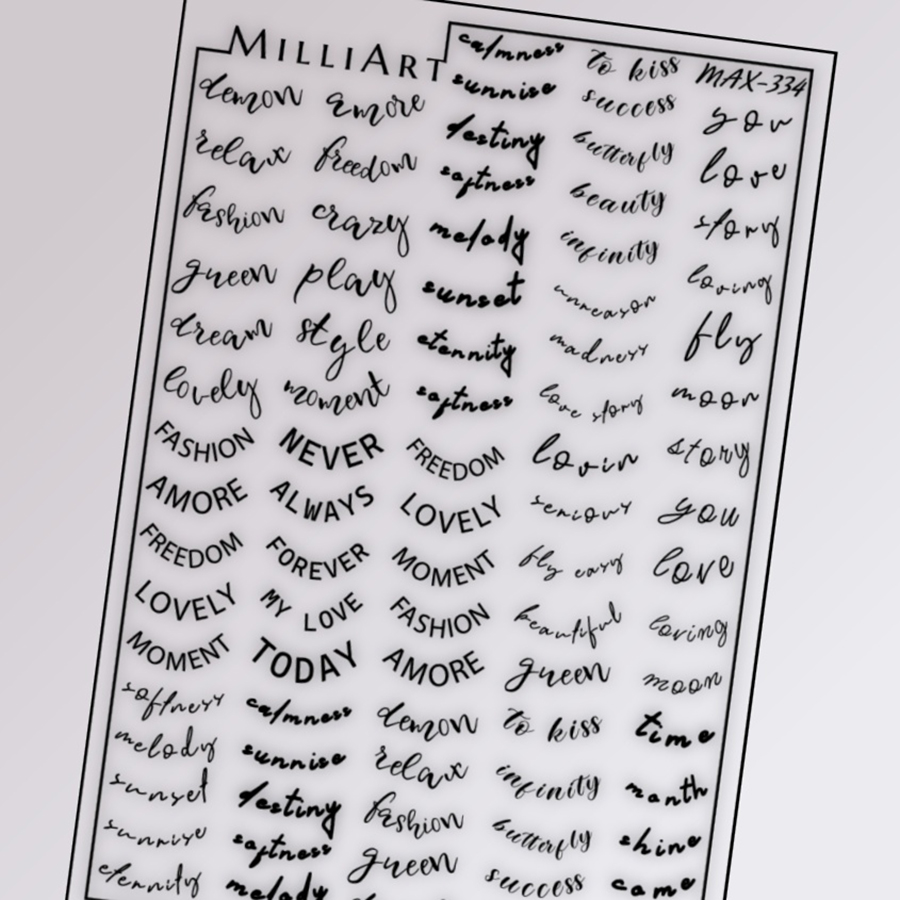 MILLIART
calmness to kiss MAX-334
demon amore sunnise success you
relax freedom destiny butterfly love
fashion crazy softness beauty story
queen play melody infinity loving
dream style sunset unreason fly
lovely moment etennity madness moon
FASHION NEVER softness love story story
AMORE ALWAYS FREEDOM lovin you
FREEDOM FOREVER LOVELY seriouy love
LOVELY MY LOVE MOMENT fly easy loving
MOMENT TODAY FASHION beautiful moon
softness calmness AMORE queen time
melody sunnise demon to kiss manth
sunset destiny relax infinity shine
sunrise softness fashion butterfly came
eternity melady queen success